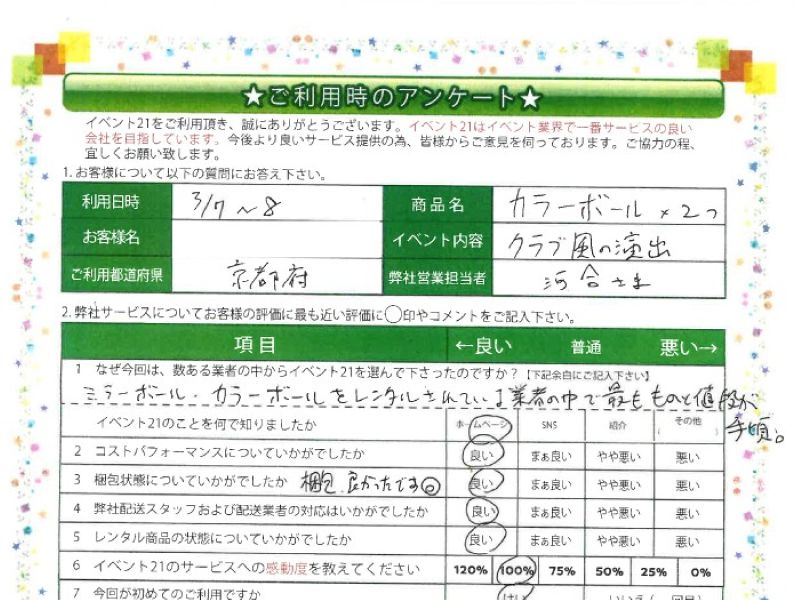 ★ご利用時のアンケート★
イベント21をご利用頂き、誠にありがとうございます。イベント21はイベント業界で一番サービスの良い
会社を目指しています。今後より良いサービス提供の為、皆様からご意見を伺っております。ご協力の程、
宜しくお願い致します。
1. お客様について以下の質問にお答え下さい。
利用日時 3/7~8 商品名 カラーボール×2つ
お客様名 イベント内容 クラブ風の演出
ご利用都道府県 京都府 弊社営業担当者 河合さま
2. 弊社サービスについてお客様の評価に最も近い評価に○印やコメントをご記入下さい。
項目 ←良い 普通 悪い→
1 なぜ今回は、数ある業者の中からイベント21を選んで下さったのですか?【下記余白にご記入下さい】
ミラーボール・カラーボールをレンタルされている業者の中で最も ものと値段が
手頃。
イベント21のことを何で知りましたか ホームページ SNS 紹介 その他 ( )
2 コストパフォーマンスについていかがでしたか 良い まぁ良い やや悪い 悪い
3 梱包状態についていかがでしたか 梱包、良かったです◎ 良い まぁ良い やや悪い 悪い
4 弊社配送スタッフおよび配送業者の対応はいかがでしたか 良い まぁ良い やや悪い 悪い
5 レンタル商品の状態についていかがでしたか 良い まぁ良い やや悪い 悪い
6 イベント21のサービスへの感動度を教えてください 120% 100% 75% 50% 25% 0%
7 今回が初めてのご利用ですか はい いいえ( 回目)